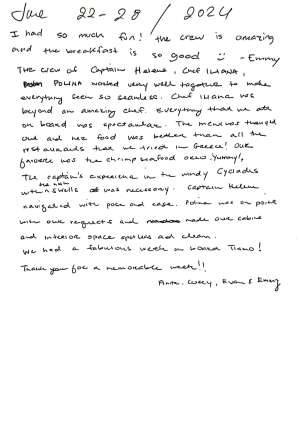 June 22-28 / 2024
I had so much fun! the crew is amazing
and the breakfast is so good - Emmy
The crew of Captain Helene, Chef Iliana,
Polina worked very well together to make
everything seem so seamless. Chef Iliana was
beyond an amazing chef. Everything that we ate
on board was spectacular. The menu was thought
out and her food was better than all the
restaurants that we tried in Greece! Our
favorite was the shrimp seafood orzo. Yummy!,
The captain's experience in the windy Cyclades
with the high skills was necessary. Captain Helen
navigated with poise and ease. Polina was on point
with our requests and made our cabins
and interior space spotless and clean.
We had a fabulous week on board Tiano!
Thank you for a memorable week!!
Evan & Emmy